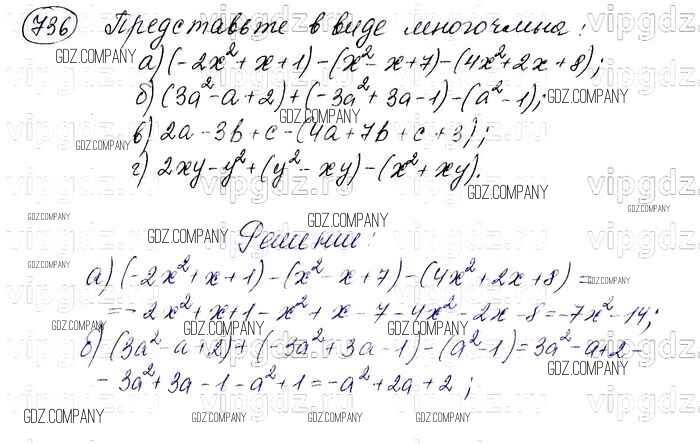 736 Представьте в виде многочлена:
а) (-2x²+x+1)-(x²-x+7)-(4x²+2x+8);
б) (3a²-a+2)+(-3a²+3a-1)-(a²-1);
в) 2a-3b+c-(4a+7b+c+3);
г) 2xy-y²+(y²-xy)-(x²+xy).
Решение:
а) (-2x²+x+1)-(x²-x+7)-(4x²+2x+8)=
=-2x²+x+1-x²+x-7-4x²-2x-8=-7x²-14;
б) (3a²-a+2)+(-3a²+3a-1)-(a²-1)=3a²-a+2-
-3a²+3a-1-a²+1=-a²+2a+2;
GDZ.COMPANY
vipgdz.ru